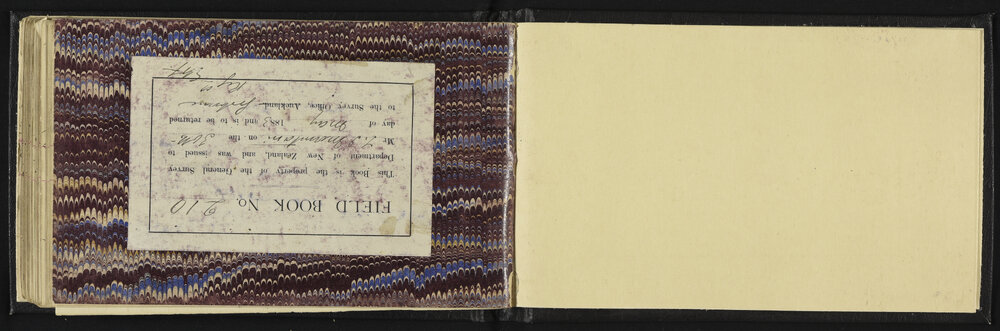 FIELD BOOK No. 210
This Book is the property of the General Survey
Department of New Zealand, and was issued to
Mr on the 30th
day of May 1883 and is to be returned
to the Survey Office, Auckland.